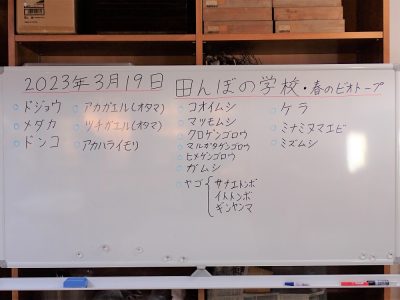 2023年3月19日 田んぼの学校・春のビオトープ
○ドジョウ
○メダカ
○ドンコ
○アカガエル(オタマ)
○ツチガエル(オタマ)
○アカハライモリ
○コオイムシ
○マツモムシ
○クロゲンゴロウ
○マルガタゲンゴロウ
○ヒメゲンゴロウ
○ガムシ
○ヤゴ{サナエトンボ
イトトンボ
ギンヤンマ
○ケラ
○ミナミヌマエビ
○ミズムシ